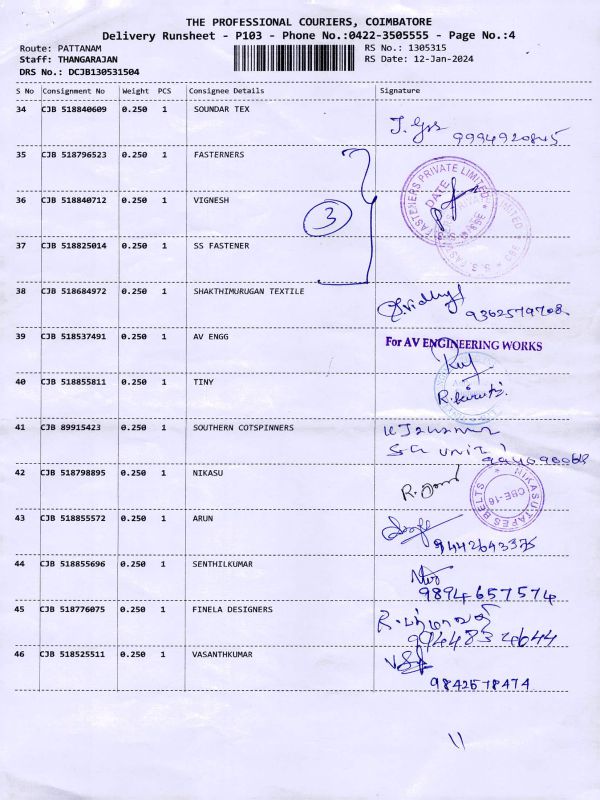 THE PROFESSIONAL COURIERS, COIMBATORE
Delivery Runsheet - P103 - Phone No.:0422-3505555 - Page No.:4
Route: PATTANAM
RS No.: 1305315
Staff: THANGARAJAN
RS Date: 12-Jan-2024
DRS No.: DCJB130531504
S No Consignment No Weight PCS Consignee Details Signature
34 CJB 518840609 0.250 1 SOUNDAR TEX
9994920845
35 CJB 518796523 0.250 1 FASTERNERS
36 CJB 518840712 0.250 1 VIGNESH
3
37 CJB 518825014 0.250 1 SS FASTENER
38 CJB 518684972 0.250 1 SHAKTHIMURUGAN TEXTILE
9362579708
39 CJB 518537491 0.250 1 AV ENGG For AV ENGINEERING WORKS
40 CJB 518855811 0.250 1 TINY
41 CJB 89915423 0.250 1 SOUTHERN COTSPINNERS
UNIT 1
42 CJB 518798895 0.250 1 NIKASU NIKASU TAPES BELTS CBE-16
43 CJB 518855572 0.250 1 ARUN
9442643375
44 CJB 518855696 0.250 1 SENTHILKUMAR
9894657574
45 CJB 518776075 0.250 1 FINELA DESIGNERS
46 CJB 518525511 0.250 1 VASANTHKUMAR
9842578474